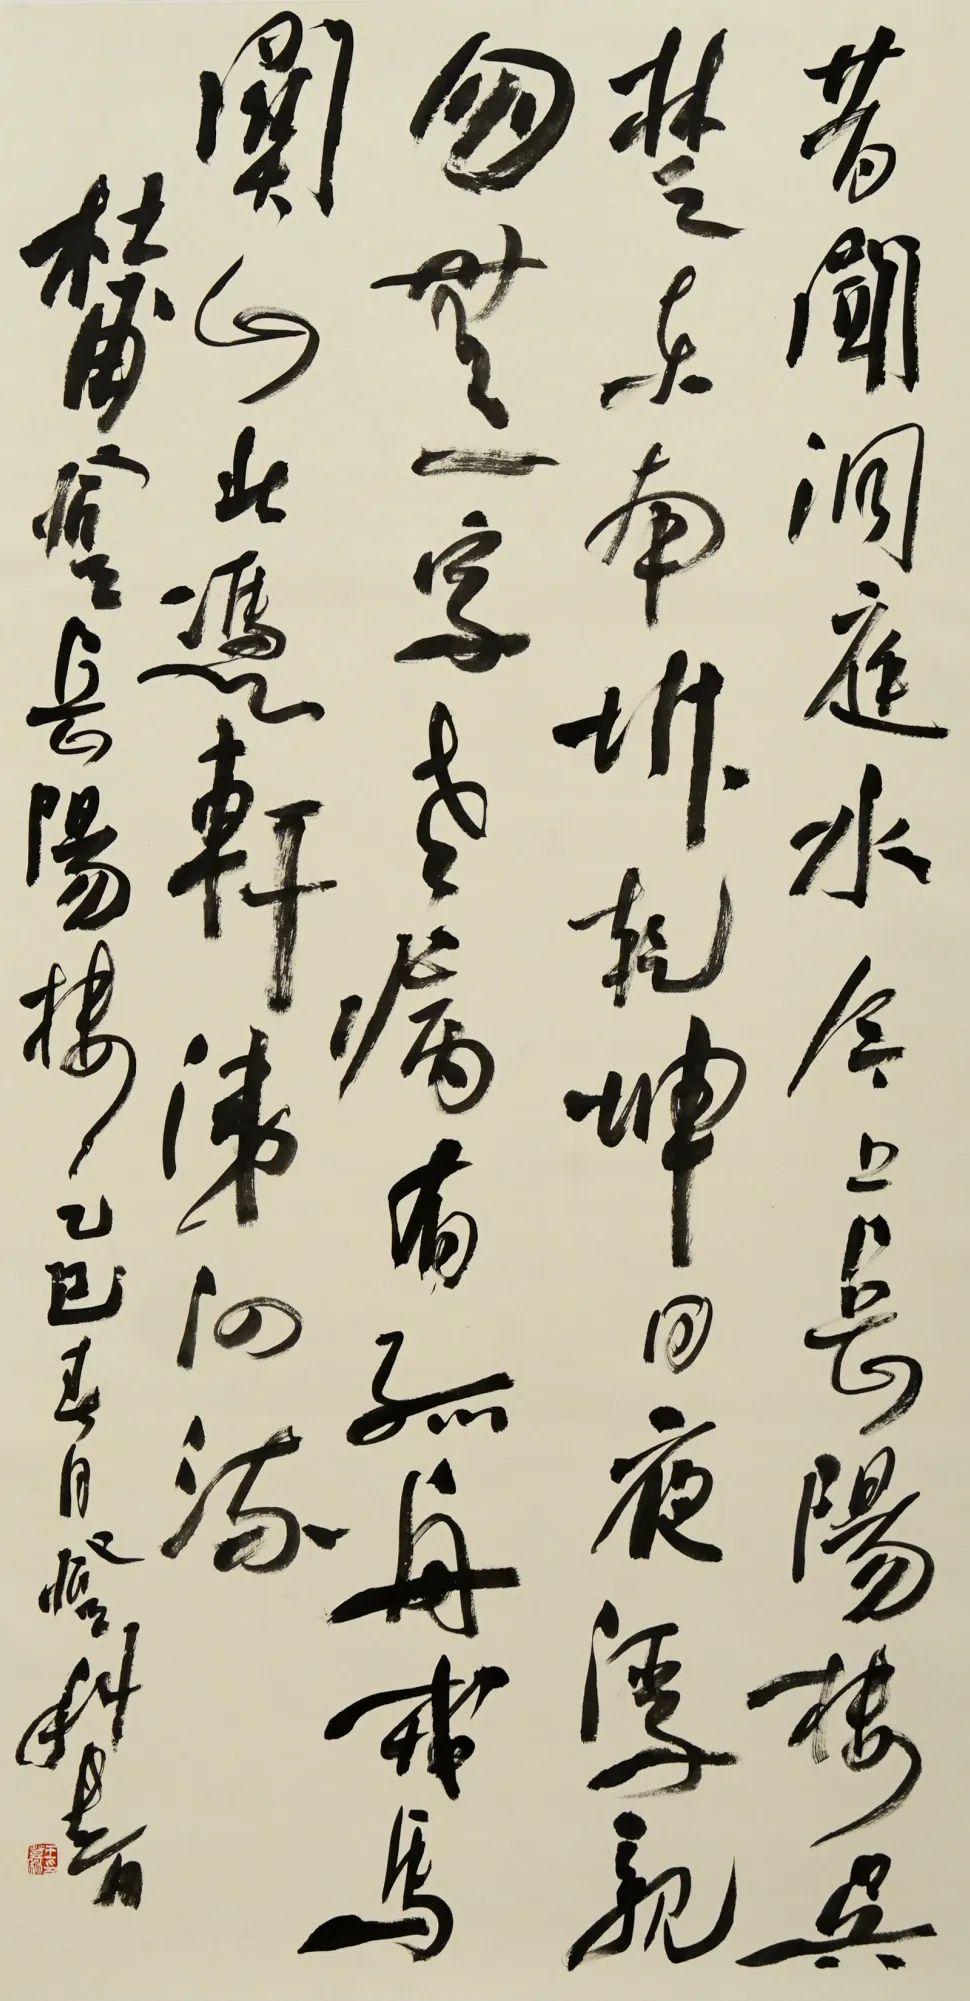 昔聞洞庭水今上岳陽樓吳
楚東南坼乾坤日夜浮親
朋無一字老病有孤舟戎馬
關山北憑軒涕泗流
杜甫登岳陽樓乙巳春月登科書